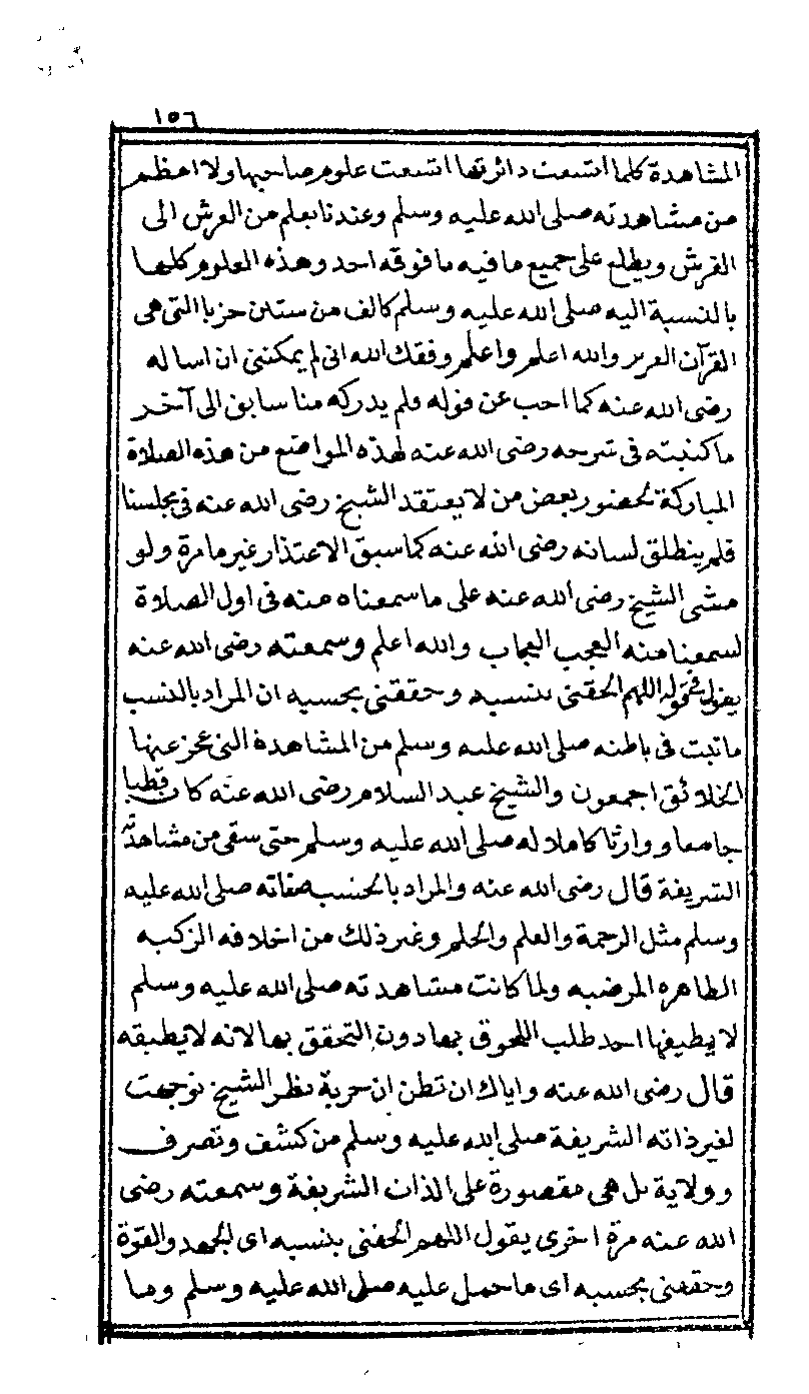 ١٥٦
المشاهدة كلما اتسعت دائرتها اتسعت علوم صاحبها ولا اعظم
من مشاهدته صلى الله عليه وسلم وعندنا يعلم من العرش الى
الفرش ويطلع على جميع ما فيه ما فوقه احد وهذه العلوم كلها
بالنسبة اليه صلى الله عليه وسلم كالف من ستين حزبا التى هى
القرآن العزيز والله اعلم واعلم وفقك الله انى لم يمكننى ان اساله
رضى الله عنه كما احب عن قوله ولم يدركه منا سابق الى آخر
ما كتبته فى شرحه رضى الله عنه لهذه المواضع من هذه الصلاة
المباركة لحضور بعض من لا يعتقد الشيخ رضى الله عنه فى مجلسنا
فلم ينطلق لسانه رضى الله عنه كما سبق الاعتذار غير ما مرة ولو
مشى الشيخ رضى الله عنه على ما سمعناه منه فى اول الصلاة
لسمعنا منه العجب العجاب والله اعلم وسمعته رضى الله عنه
يقول فى قوله اللهم الحقنى بنسبه وحققنى بحسبه ان المراد بالنسب
ما ثبت فى باطنه صلى الله عليه وسلم من المشاهدة التى عجز عنها
الخلائق اجمعون والشيخ عبد السلام رضى الله عنه كان قطبا
جامعا ووارثا كاملا له صلى الله عليه وسلم حتى سقى من مشاهدته
الشريفة قال رضى الله عنه والمراد بالحسب صفاته صلى الله عليه
وسلم مثل الرحمة والعلم والحلم وغير ذلك من اخلاقه الزكيه
الطاهره المرضيه ولما كانت مشاهدته صلى الله عليه وسلم
لا يطيقها احد طلب اللحوق بها دون التحقق بها لانه لا يطيقه
قال رضى الله عنه واياك ان تظن ان حربة نظر الشيخ توجهت
لغير ذاته الشريفة صلى الله عليه وسلم من كشف وتصرف
وولاية بل هى مقصورة على الذات الشريفة وسمعته رضى
الله عنه مرة اخرى يقول اللهم الحقنى بنسبه اى الجهد والقوة
وحققنى بحسبه اى ما حمل عليه صلى الله عليه وسلم وما